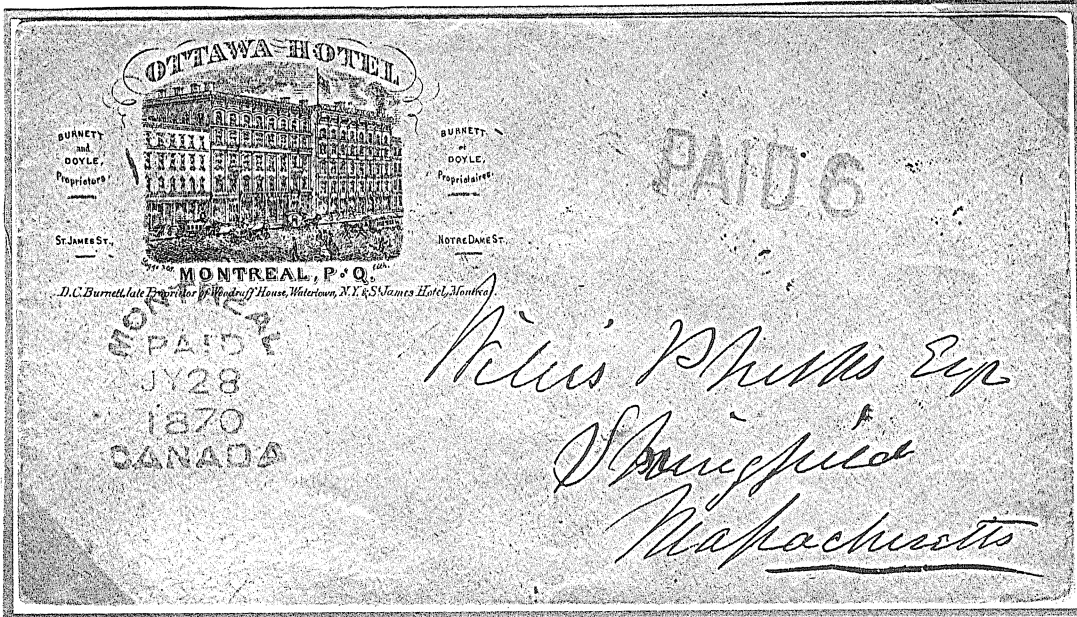 OTTAWA HOTEL
BURNETT
and
DOYLE,
Proprietors.
ST. JAMES ST.,
BURNETT
et
DOYLE,
Propriétaires.
NOTRE DAME ST.
MONTREAL, P.Q.
D.C. Burnett, late Proprietor of Woodruff House, Watertown, N.Y. & St James Hotel, Montreal.
PAID 6
MONTREAL
PAID
JY 28
1870
CANADA
Willis Phelps Esq
Springfield
Massachusetts